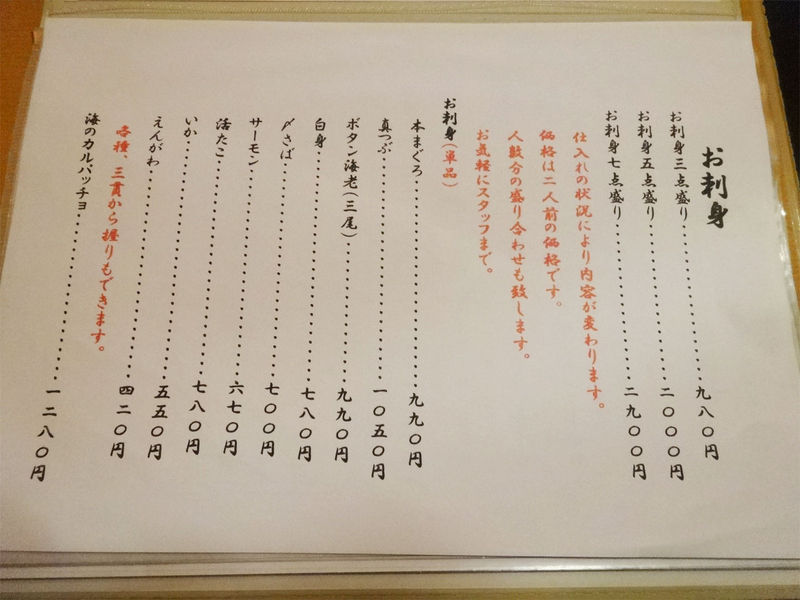 お刺身
お刺身三点盛り・・・・・・・・・・九八〇円
お刺身五点盛り・・・・・・・・・・二〇〇〇円
お刺身七点盛り・・・・・・・・・・二九〇〇円
仕入れの状況により内容が変わります。
価格は二人前の価格です。
人数分の盛り合わせも致します。
お気軽にスタッフまで。
お刺身(単品)
本まぐろ・・・・・・・・・・九九〇円
真つぶ・・・・・・・・・・一〇五〇円
ボタン海老(三尾)・・・・・・・・・・九九〇円
白身・・・・・・・・・・七八〇円
〆さば・・・・・・・・・・七〇〇円
サーモン・・・・・・・・・・六七〇円
活たこ・・・・・・・・・・七八〇円
いか・・・・・・・・・・五五〇円
えんがわ・・・・・・・・・・四二〇円
各種、三貫から握りもできます。
海のカルパッチョ・・・・・・・・・・一二八〇円